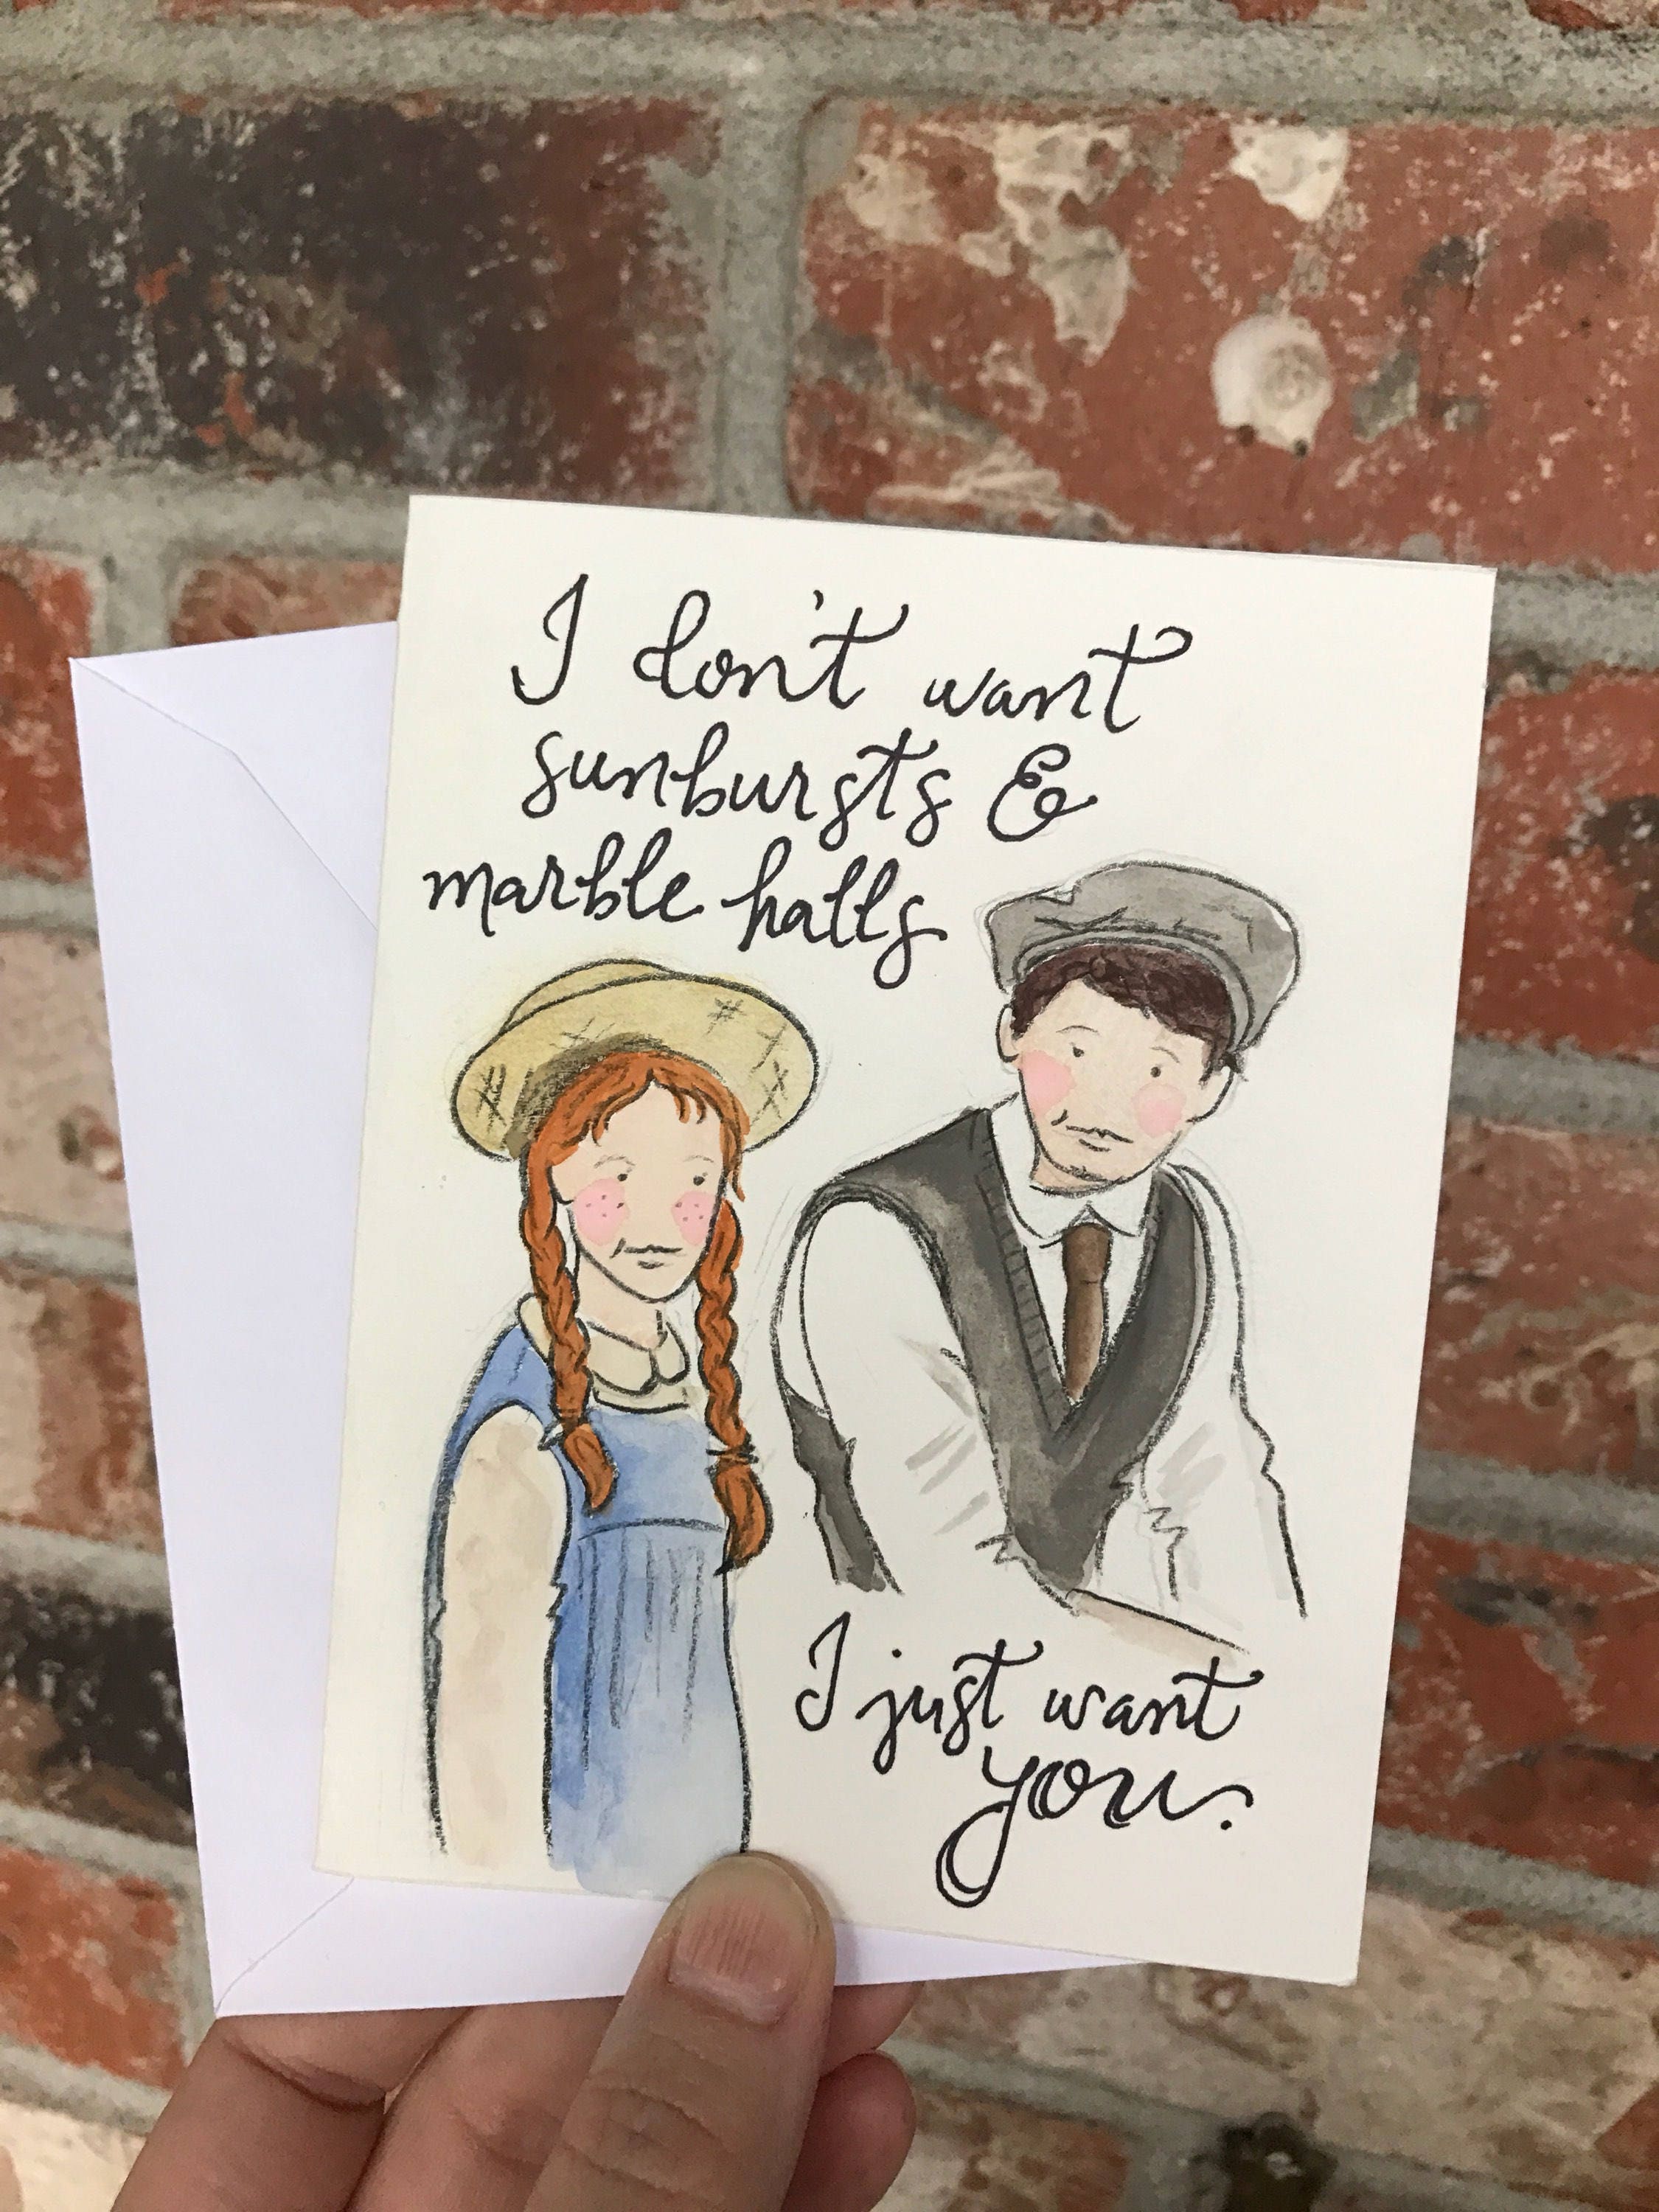 I don't want
sunbursts &
marble halls
I just want
you.